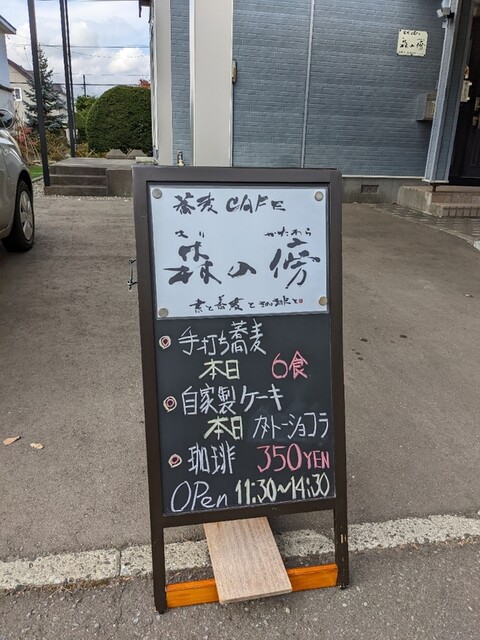 蕎麦 CAFE
もり かたわら
森の傍
手打ち蕎麦
本日 6食
自家製ケーキ
本日 ガトーショコラ
珈琲 350YEN
OPEN 11:30～14:30
森の傍